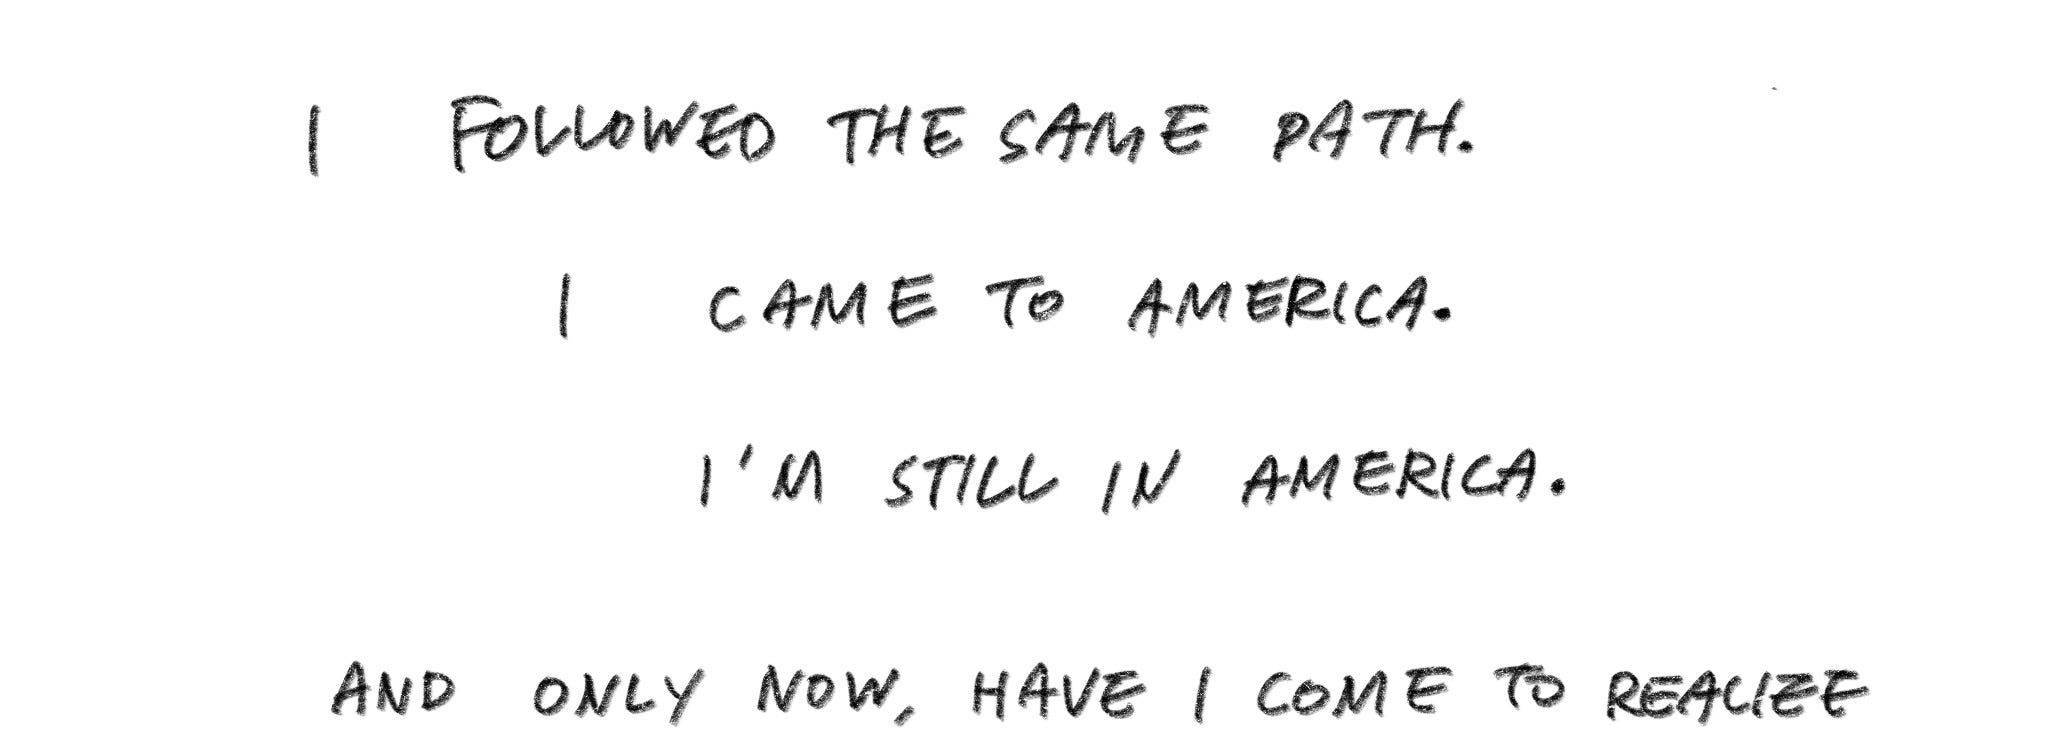 I FOLLOWED THE SAME PATH.
I CAME TO AMERICA.
I'M STILL IN AMERICA.
AND ONLY NOW, HAVE I COME TO REALIZE